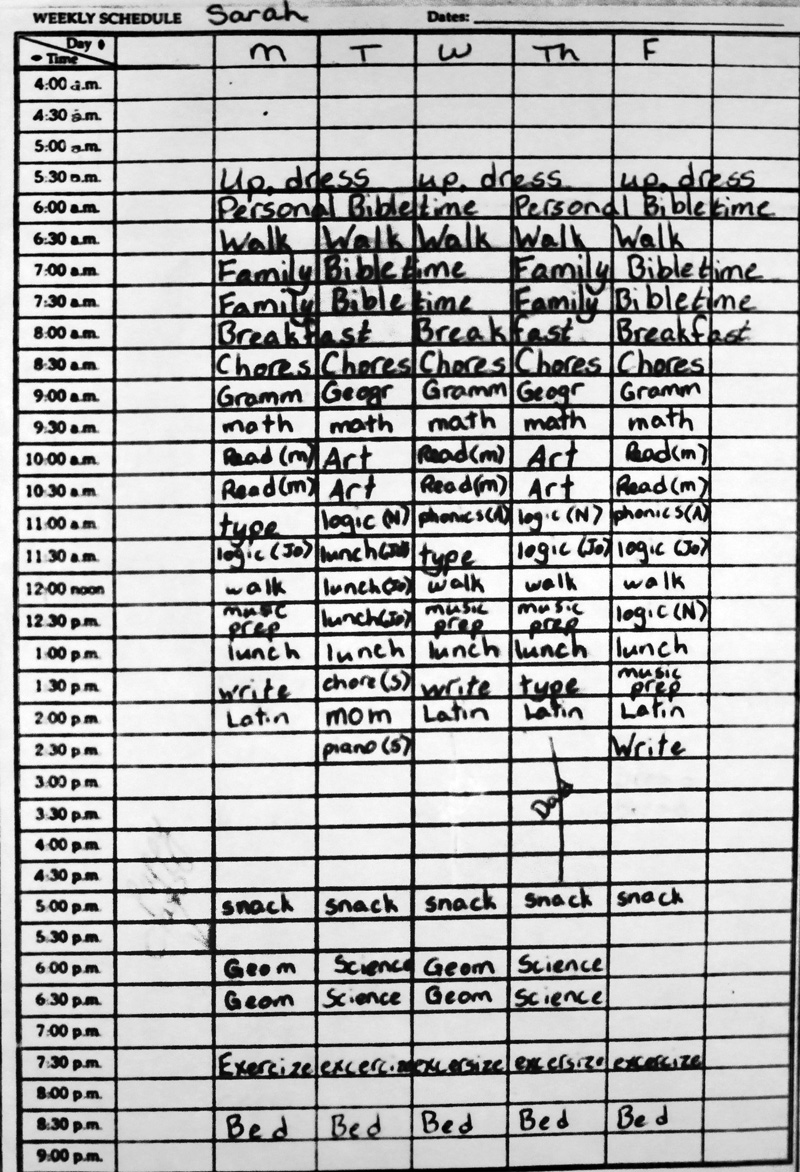 WEEKLY SCHEDULE Sarah Dates:
Day
Time M T W Th F
4:00 a.m.
4:30 a.m.
5:00 a.m.
5:30 a.m. Up, dress up, dress up, dress
6:00 a.m. Personal Bible time Personal Bible time
6:30 a.m. Walk Walk Walk Walk Walk
7:00 a.m. Family Bible time Family Bible time
7:30 a.m. Family Bible time Family Bible time
8:00 a.m. Breakfast Breakfast Breakfast
8:30 a.m. Chores Chores Chores Chores Chores
9:00 a.m. Gramm Geogr Gramm Geogr Gramm
9:30 a.m. math math math math math
10:00 a.m. Read (m) Art Read (m) Art Read (m)
10:30 a.m. Read (m) Art Read (m) Art Read (m)
11:00 a.m. type logic (N) phonics (A) logic (N) phonics (A)
11:30 a.m. logic (Jo) lunch (Jo) type logic (Jo) logic (Jo)
12:00 noon walk lunch (Jo) walk walk walk
12:30 p.m. music prep lunch (Jo) music prep music prep logic (N)
1:00 p.m. lunch lunch lunch lunch lunch
1:30 p.m. write chore (S) write type music prep
2:00 p.m. Latin mom Latin Latin Latin
2:30 p.m. piano (S) Write
3:00 p.m.
3:30 p.m.
4:00 p.m.
4:30 p.m.
5:00 p.m. snack snack snack snack snack
5:30 p.m.
6:00 p.m. Geom Science Geom Science
6:30 p.m. Geom Science Geom Science
7:00 p.m.
7:30 p.m. Exercize excercize excersize excersize excercize
8:00 p.m.
8:30 p.m. Bed Bed Bed Bed Bed
9:00 p.m.